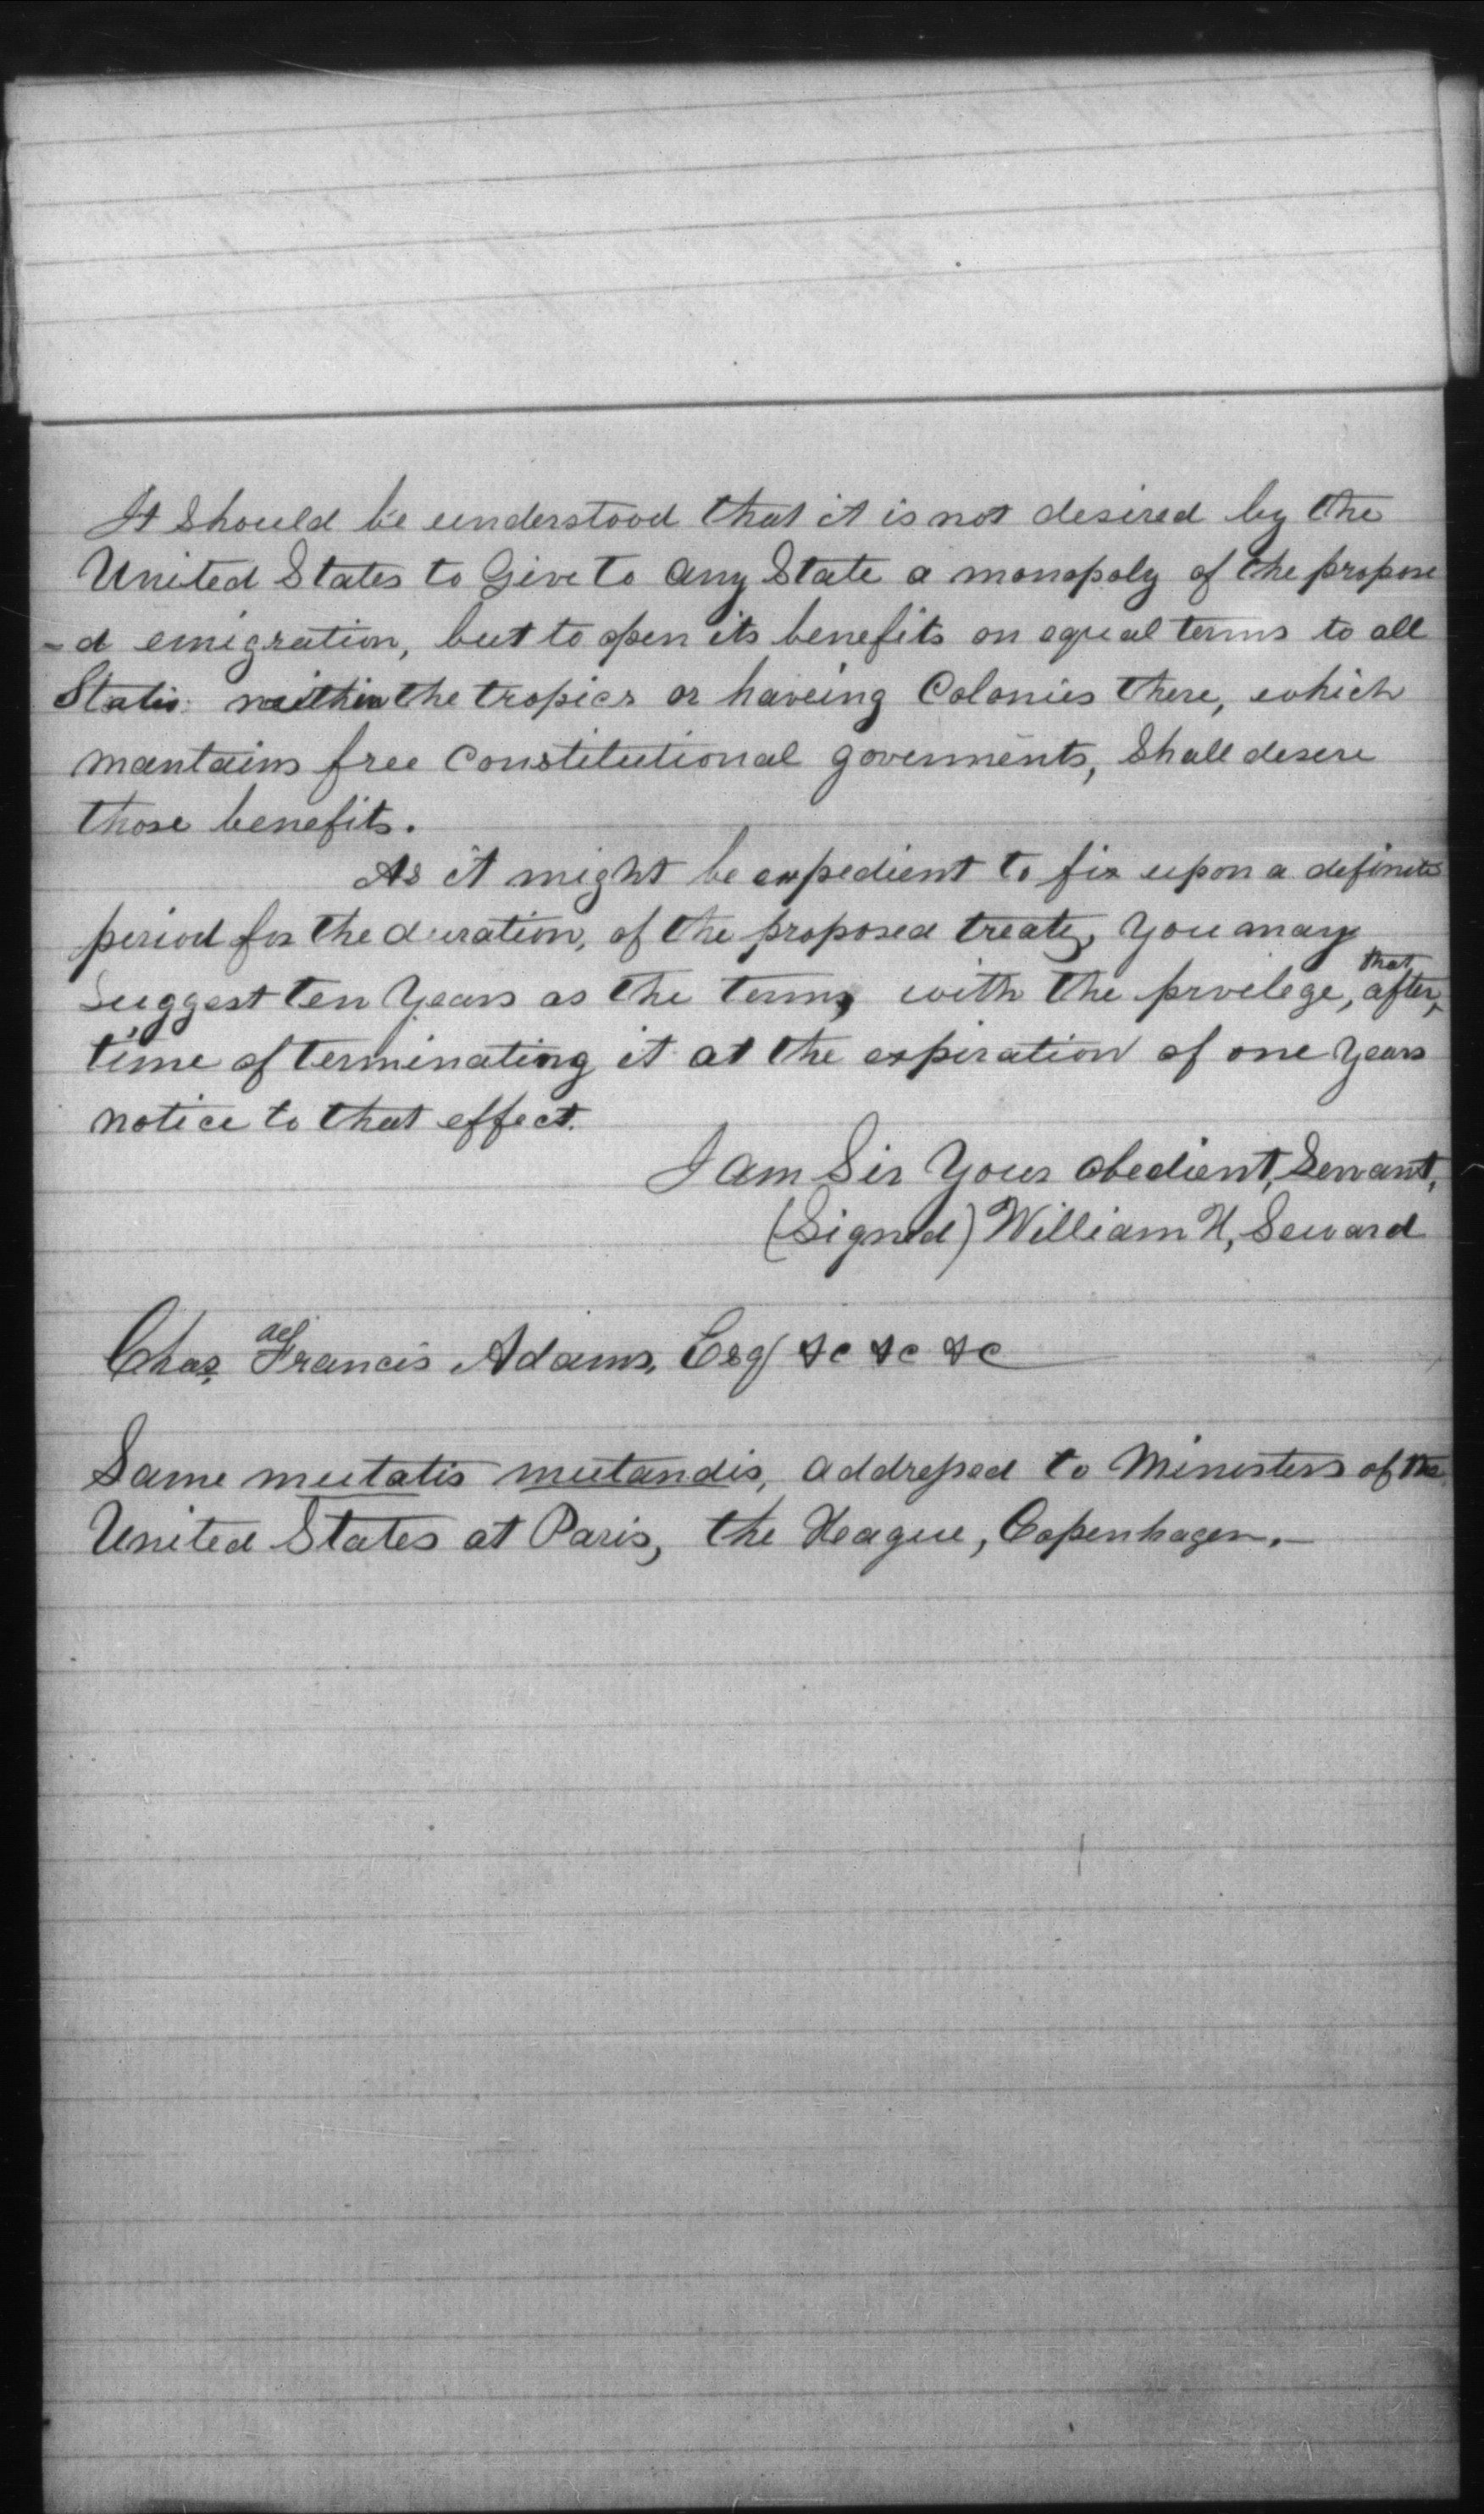 It Should be understood that it is not desired by the
United States to Give to any State a monopoly of the propose
-d emigration, but to open its benefits on equal terms to all
States within the tropics or haveing Colonies there, which
mantains free Constitutional goverments, Shall desire
those benefits.
As it might be expedient to fix upon a definite
period for the duration, of the proposed treaty, you may
Suggest ten years as the term, with the prvelege, after, that
time of terminating it at the expiration of one years
notice to that effect.
I am Sir Your obedient, Servant,
(Signed) William H, Seward
Chas, Francis Adams, Esq &c &c &c
Same mutatis mutandis, addressed to Ministers of the
United States at Paris, the Heague, Copenhagen.—